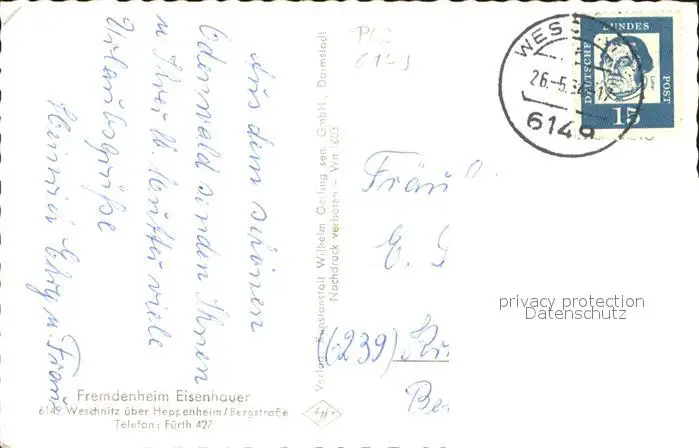 Aus dem schönen
Odenwald senden Ihnen
u. Ihrer lb. Mutter viele
Urlaubsgrüße
Heinrich u. Frau
Fremdenheim Eisenhauer
6149 Weschnitz über Heppenheim/Bergstraße
Telefon: Fürth 427
Verlag: Kunstanstalt Wilhelm Gerling sen. GmbH., Darmstadt
Nachdruck verboten - Wn 1603
PLZ
6149
WES
26.-5.
6149
DEUTSCHE
BUNDES
POST
15
Fräul
E.
(239)
privacy protection
Datenschutz